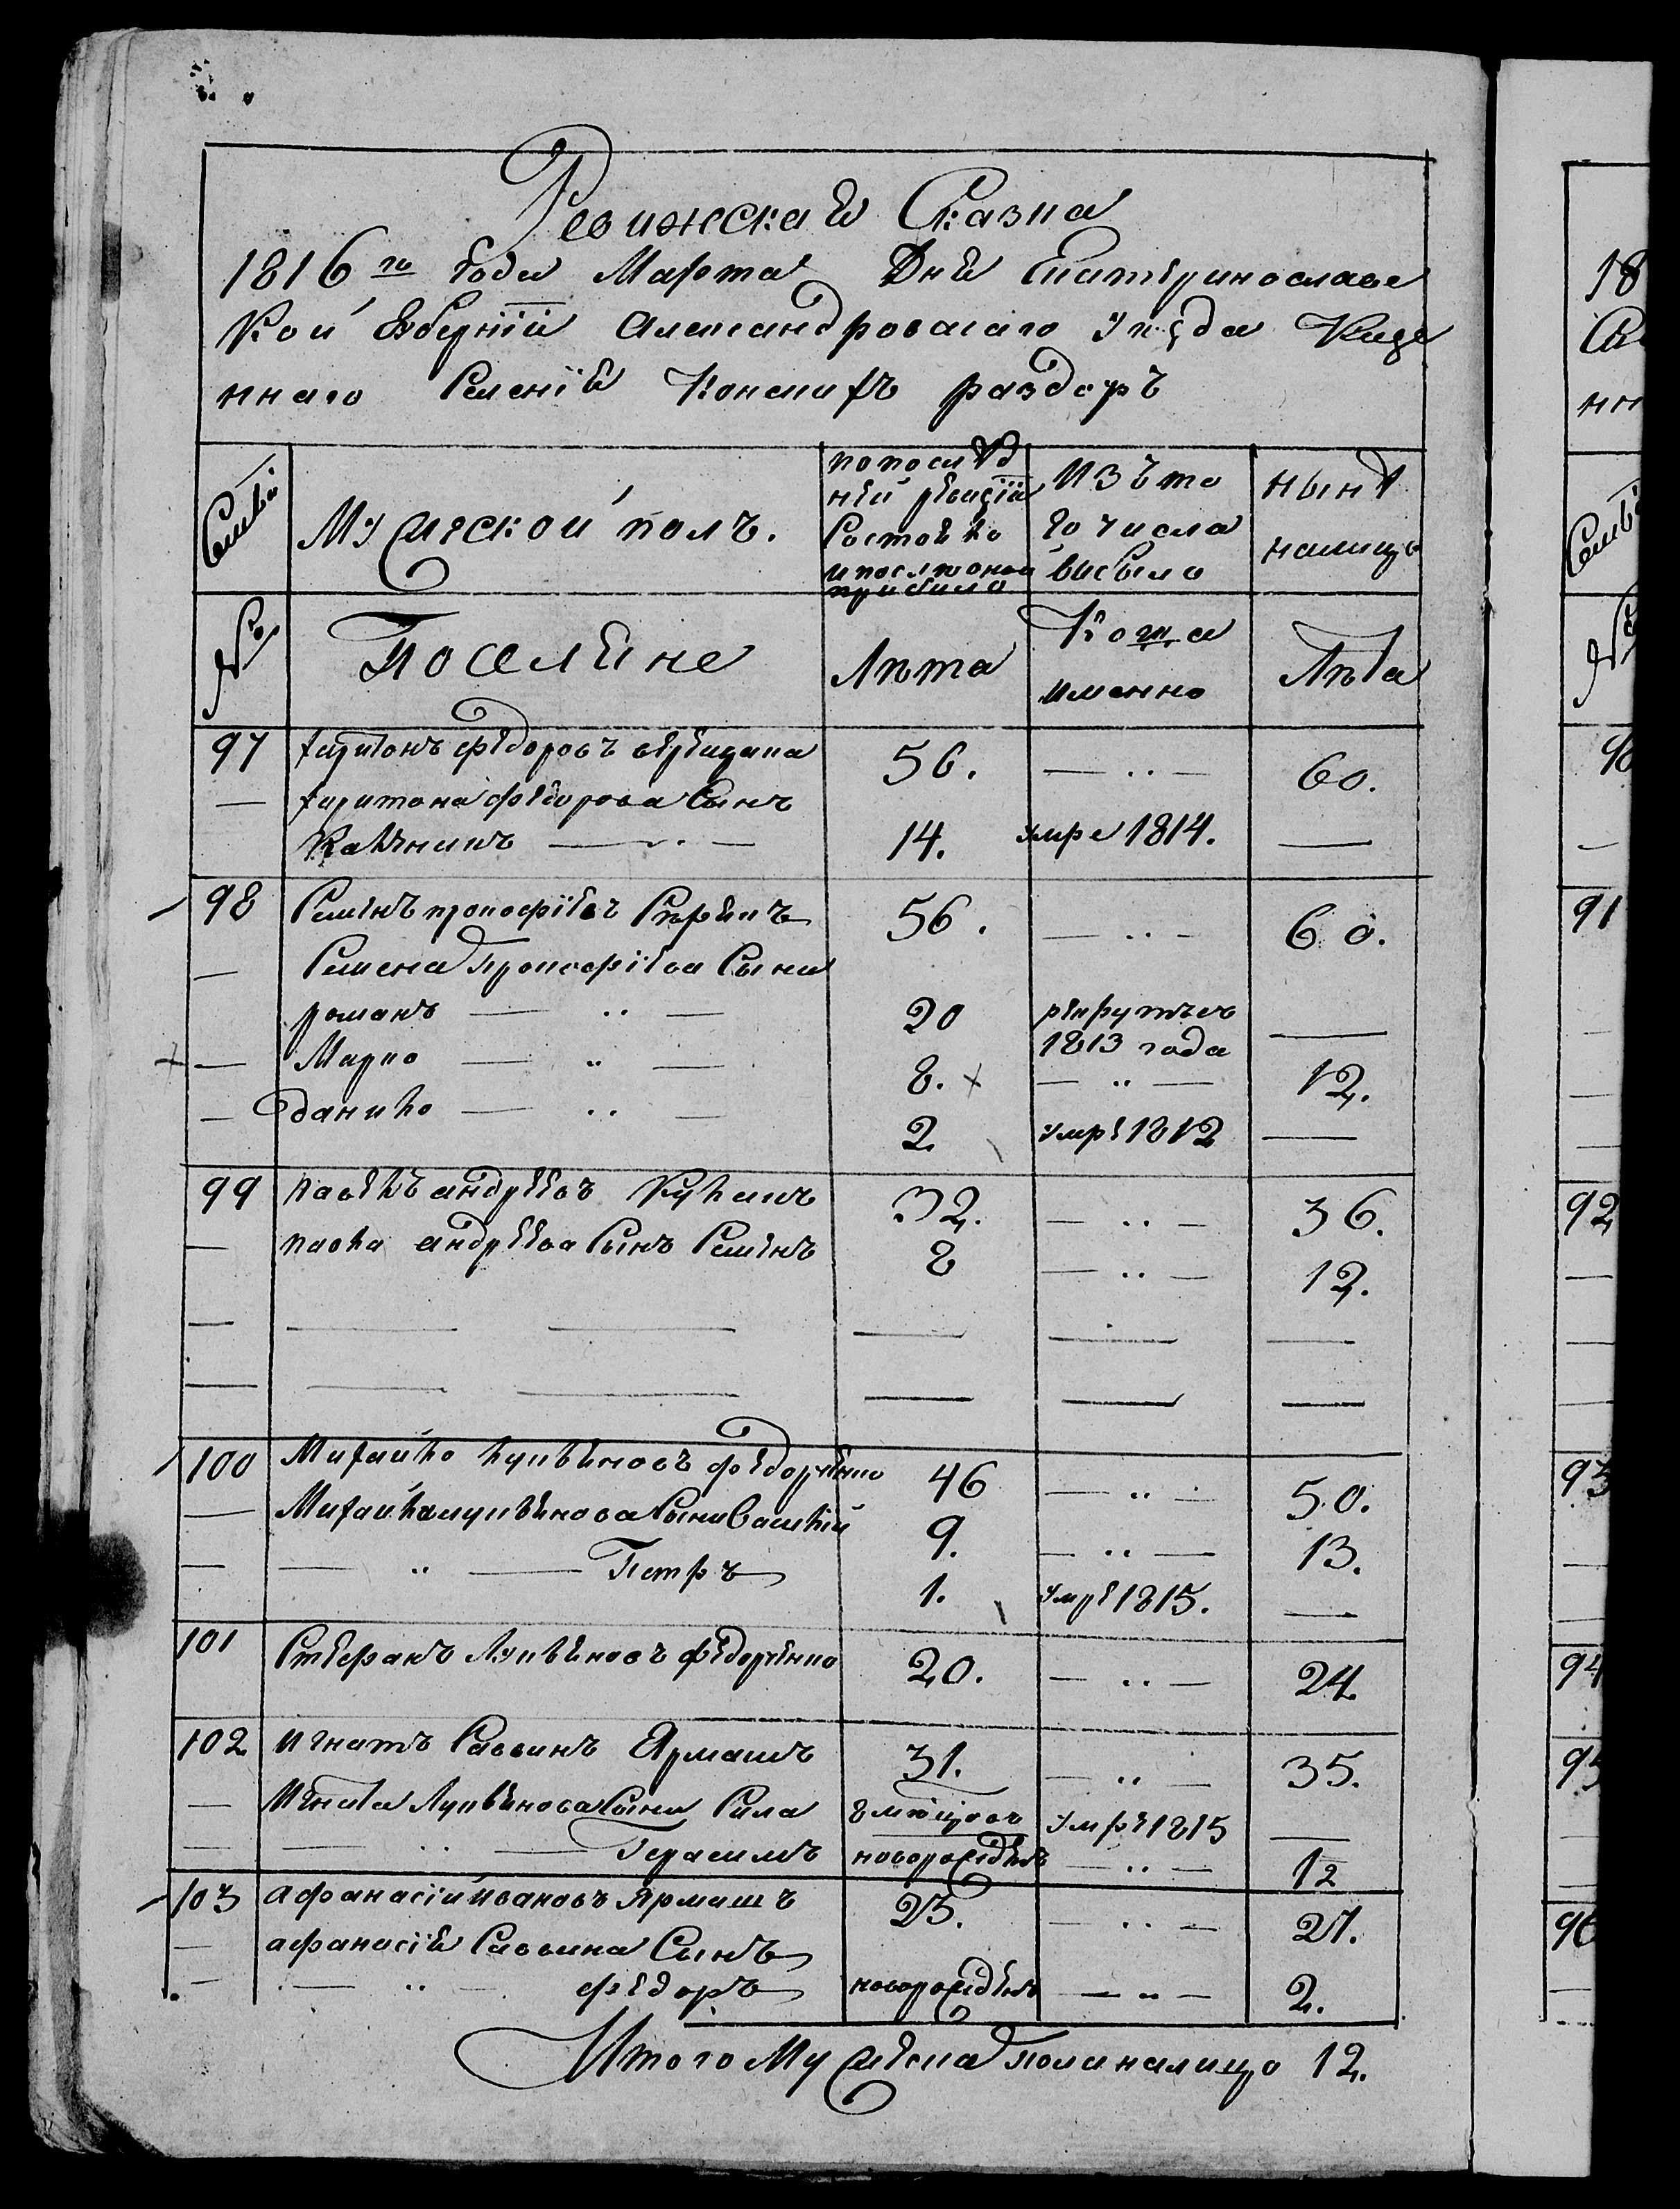 Ревижская Сказка
1816го Года Марта Дня Екатеринославс
кой Губернїи Александровскаго уезда Казе
ннаго Селенїя Конскихъ раздоръ
Семьи
Мужескои полъ.
по послед
ней ревизїи
Состояло
и после оной
прибыло
Изъ то
го числа
выбыло
ныне
налицо
№
Поселяне
Лета
Когда
именно
Лета
97 Харитонъ Федоровъ 56. — .. — 60.
— Харитона Федорова Сынъ
14. умре 1814. —
98 Семенъ Прокофїевъ 56. — .. — 60.
— Семена Прокофїева Сыны
романъ — .. — 20 рекрутъ въ 1813 года —
— Марко — .. — 8. х — .. — 12.
— данило — .. — 2 умре 1812 —
99 павелъ андреевъ 32. — .. — 36.
— павла андреева Сынъ Семенъ 8 — .. — 12.
100 Михайло Лукьяновъ Федорченко 46 — .. — 50.
— Михайла Лукьянова Сыны Василїй 9. — .. — 13.
— — .. — Петръ 1. умре 1815. —
101 Стефанъ Лукьяновъ Федорченко 20. — .. — 24
102 Игнатъ Саввинъ Ярмашъ 31. — .. — 35.
— Игната Лукьянова Сыны Сила 8 месяцовъ умре 1815 —
— — .. — Герасимъ новорожденъ — .. — 12
103 Афанасїй Ивановъ Ярмашъ 23. — .. — 27.
— афанасїя Саввина Сынъ
— — .. — федоръ новорожденъ — .. — 2.
Итого Мужеска пола налицо 12.
18
нн
Семьи
№
90
91
92
93
94
95
96